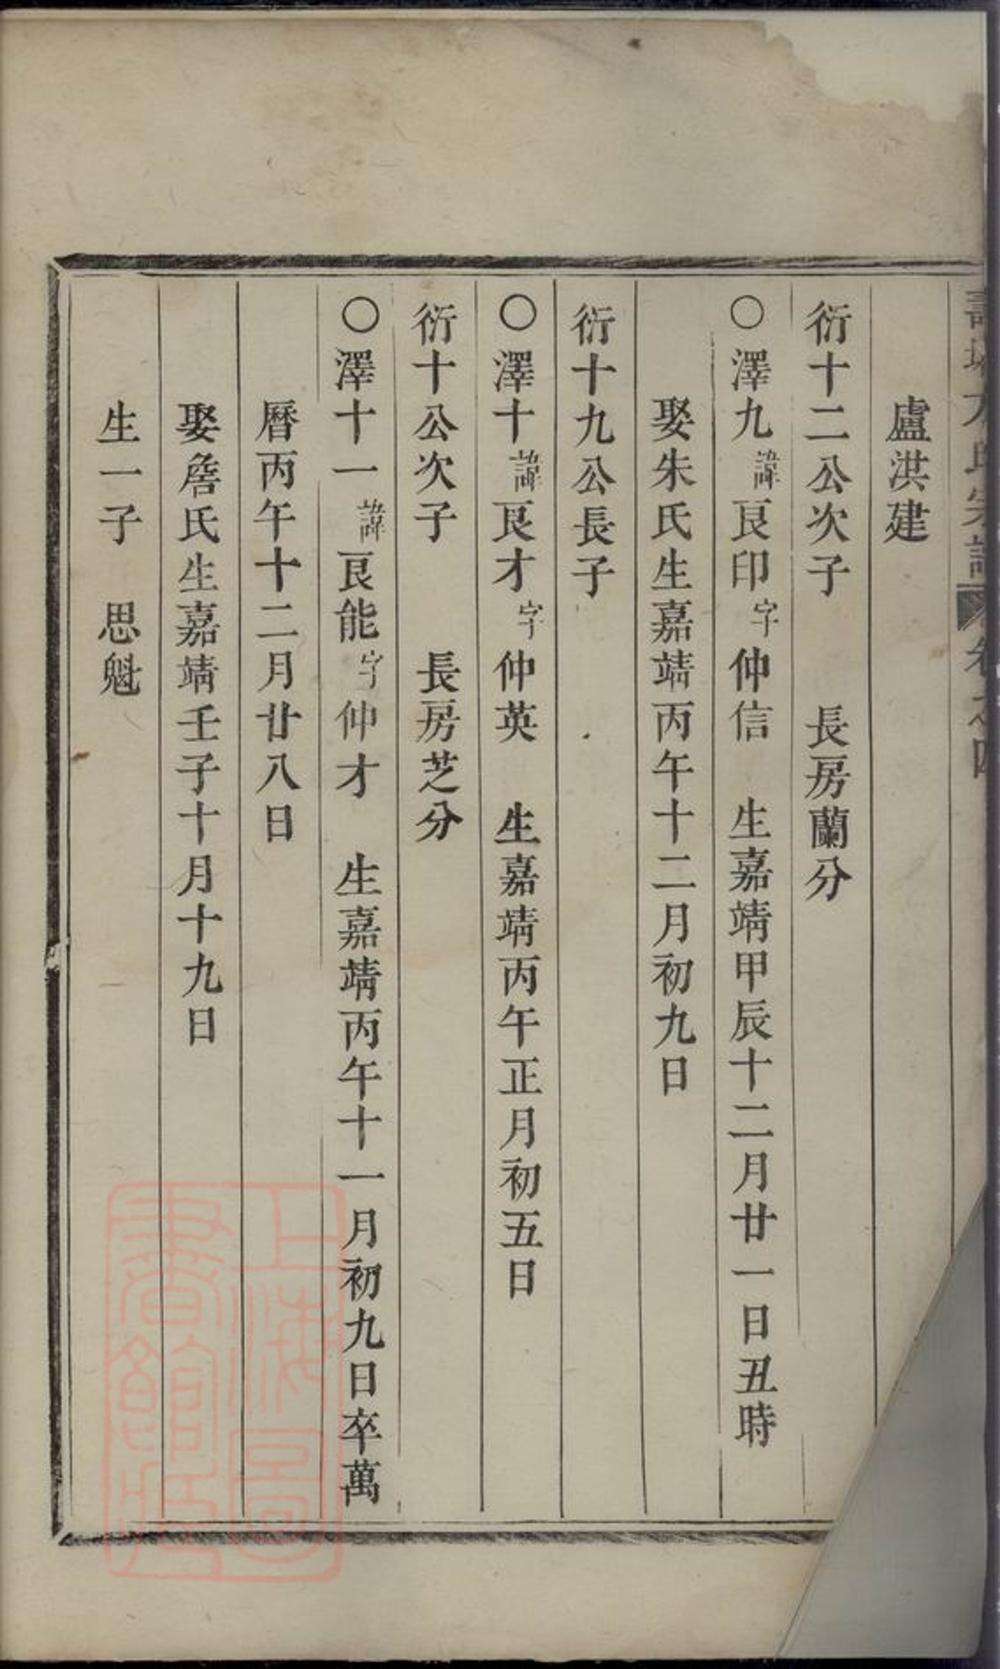 盧洪建
衍十二公次子　長房蘭分
○澤九諱良印字仲信　生嘉靖甲辰十二月廿一日丑時
娶朱氏生嘉靖丙午十二月初九日
衍十九公長子
○澤十諱良才字仲英　生嘉靖丙午正月初五日
衍十公次子　長房芝分
○澤十一諱良能字仲才　生嘉靖丙午十一月初九日卒萬
曆丙午十二月廿八日
娶詹氏生嘉靖壬子十月十九日
生一子　思魁
上海圖
書館藏